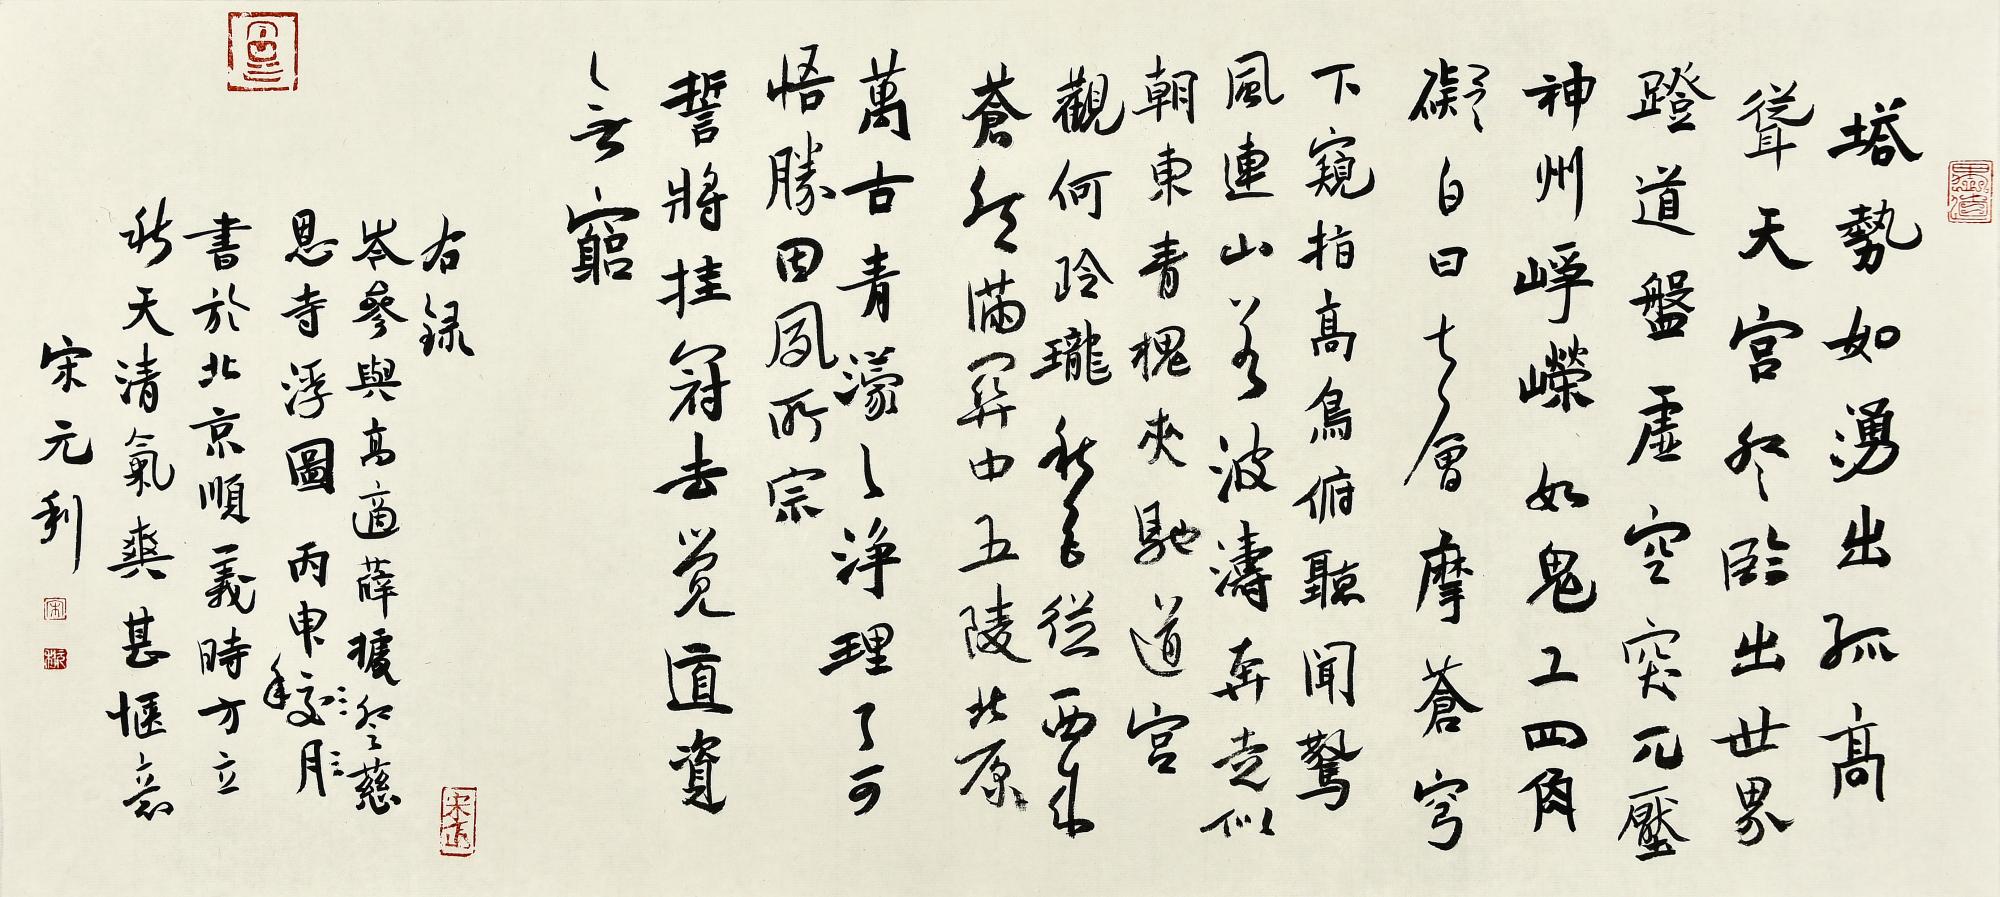 塔勢如湧出孤高
聳天宮登臨出世界
蹬道盤虛空突兀壓
神州崢嶸如鬼工四角
礙白日七層摩蒼穹
下窺指高鳥俯聽聞驚
風連山若波濤奔走似
朝東青槐夾馳道宮
觀何玲瓏秋色從西來
蒼然滿關中五陵北原
萬古青濛々淨理了可
悟勝因夙所宗
誓將挂冠去覺道資
无窮
右録
岑參與高適薛據登慈
恩寺浮圖 丙申月
書於北京順義時方立
秋天清氣爽甚愜意
宋元利